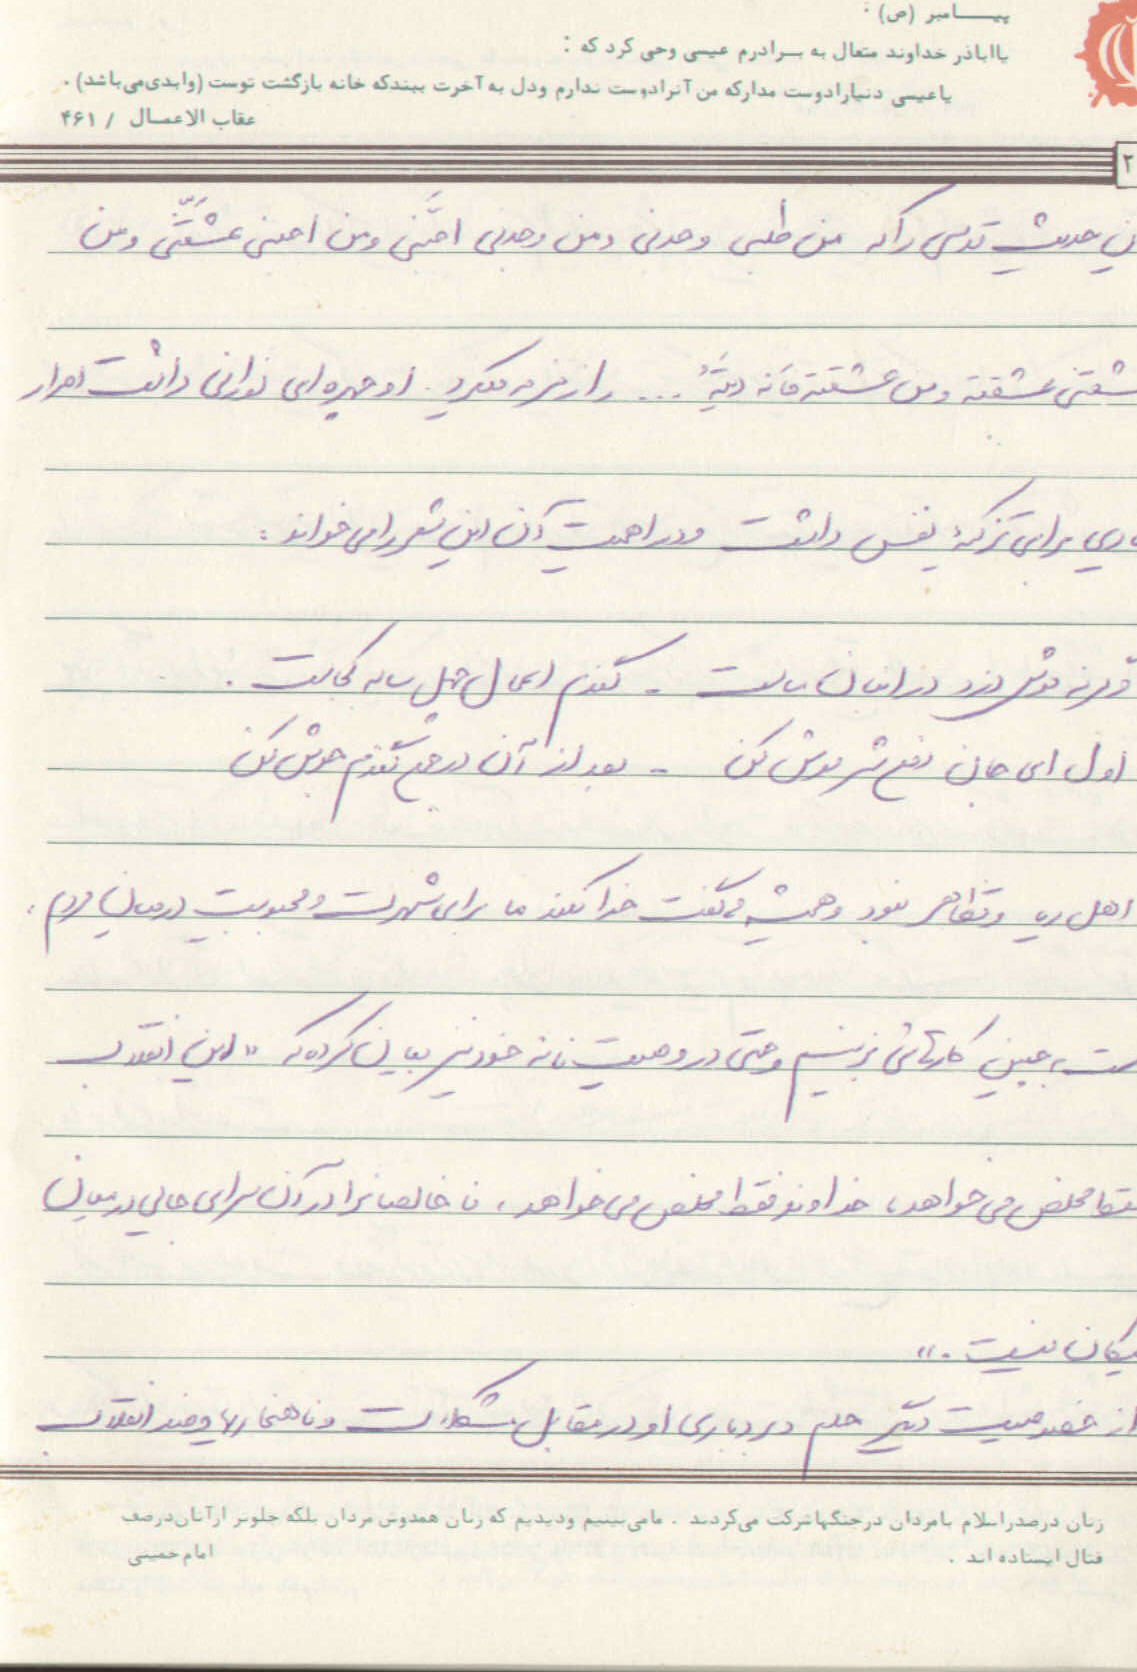 پیــــامبر (ص) :
یااباذر خداوند متعال به بـرادرم عیسی وحی کرد که :
یاعیسی دنیارادوست مدارکه من آنرادوست ندارم ودل به آخرت ببندکه خانه بازگشت توست (وابدی‌می‌باشد) .
عقاب الاعمـال / ۴۶۱
۲
حدیث قدسی را که من طلبنی وجدنی ومن وجدنی احبَّنی ومن احبنی عشقَنی ومن
عشقنی عشقته ومن عشقته فانه دیَتَهُ ... را زمزمه میکرد . او چهره‌ای نورانی داشت اصرار
برای تزکیهٔ نفس داشت ودر اهمیت آن این شعر را می خواند :
گرنه موش دزد در انبان ماست - گندم اعمال چهل ساله کجاست .
اول ای جان دفع شر موش کن - بعد از آن در جمع گندم جوش کن
اهل ریا وتظاهر نبود وهمیشه می گفت خدا نکند ما برای شهرت ومحبوبیت در میان مردم ،
دست به چنین کارهائی بزنیم وحتی در وصیت نامه خود نیز بیان کرده که «این انقلاب
فقط مخلص می خواهد، خداوند فقط مخلص می خواهد، نا خالصانرا در آن سرای جایی در میان
نیکان نیست .»
از خصوصیت دیگر حلم وبردباری او در مقابل مشکلات وناهنجاریها وضد انقلاب
زنان درصدراسلام بامردان درجنگهاشرکت می‌کردند . مامی‌بینیم ودیدیم که زنان همدوش مردان بلکه جلوتر ازآنان‌درصف
قتال ایستاده اند .
امام خمینی